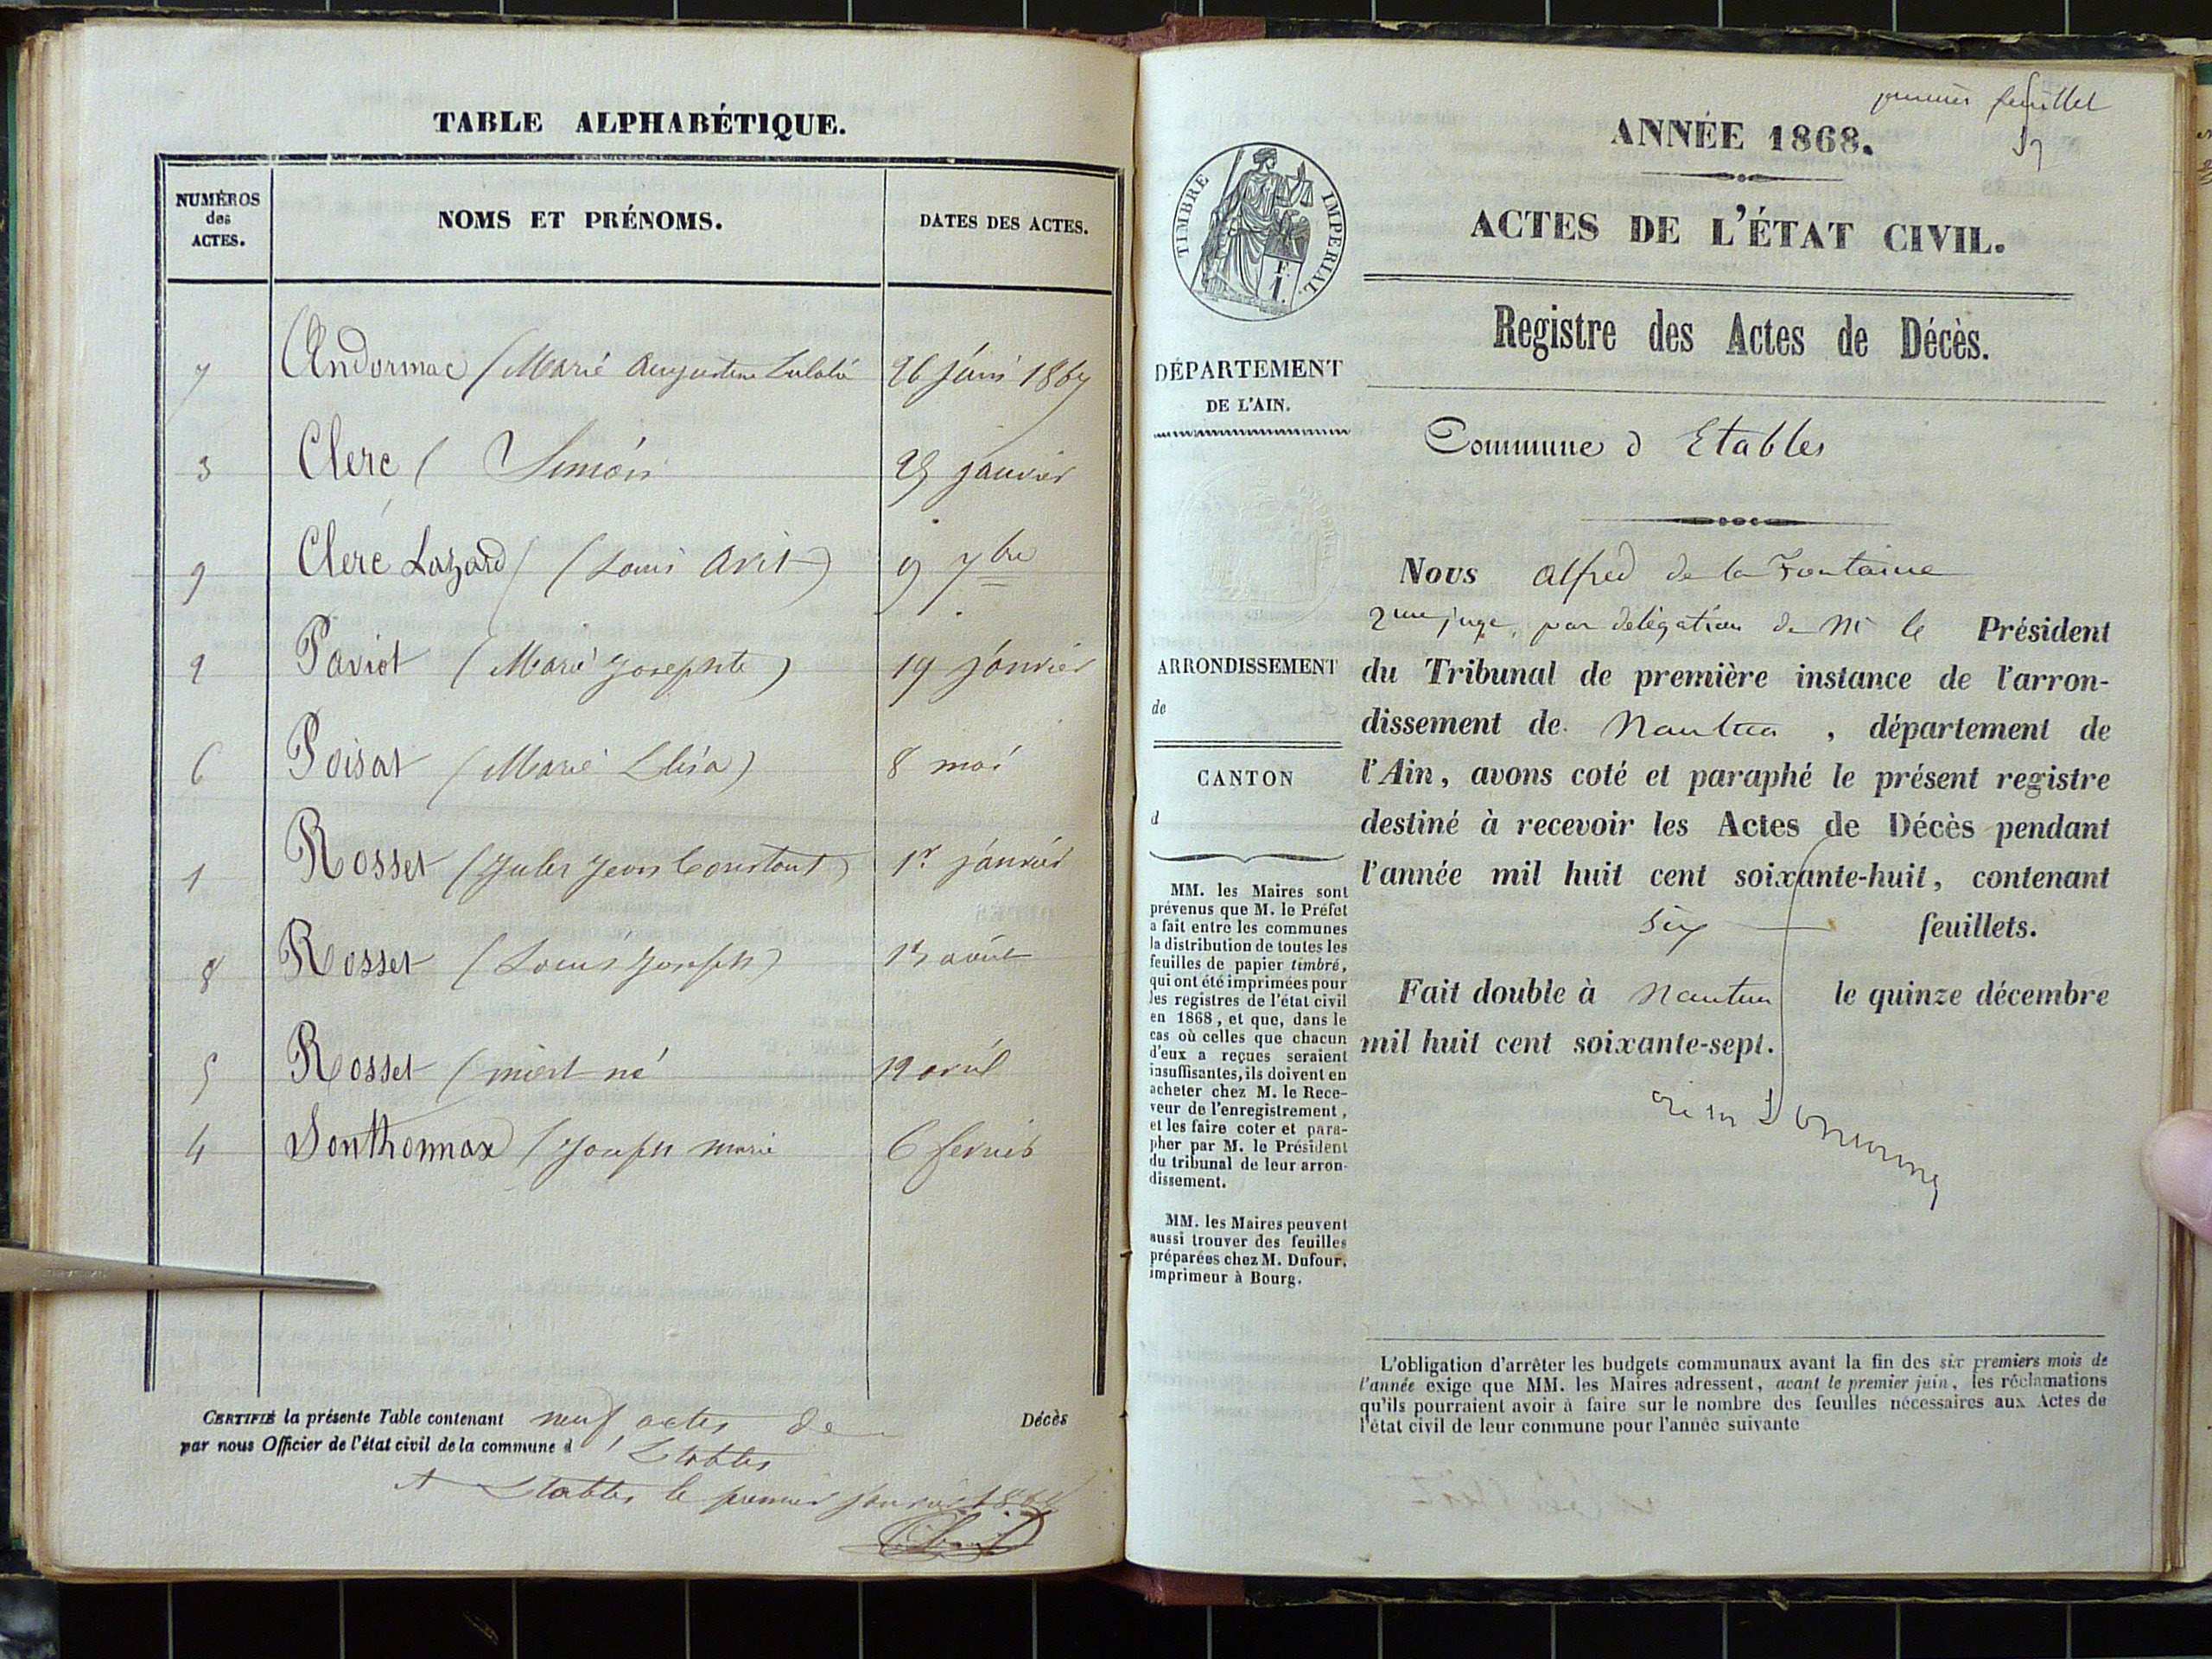 TABLE ALPHABÉTIQUE.
NUMÉROS
des
ACTES.
NOMS ET PRÉNOMS.
DATES DES ACTES.
7 Andormac (Marie Augustine 26 juin 1867
3 Clerc ( Simon 29 janvier
9 Clerc Lazard (Louis Avit) 9 7bre
2 Paviot (Marie Josephte) 19 janvier
6 Poisat (Marie Elisa) 8 mai
1 Rosset (Jules Jean Constant) 1r janvier
8 Rosset (Louis Joseph) août
5 Rosset (mort né 19 avril
4 Sonthonnax (Joseph marie 6 fevrier
CERTIFIÉ la présente Table contenant neuf actes de Décès
par nous Officier de l'état civil de la commune d Etables
A Etables le premier janvier
premier feuillet
ANNÉE 1868.
ACTES DE L'ÉTAT CIVIL.
TIMBRE IMPERIAL
DÉPARTEMENT
DE L'AIN.
ARRONDISSEMENT
de
CANTON
d
MM. les Maires sont
prévenus que M. le Préfet
a fait entre les communes
la distribution de toutes les
feuilles de papier timbré,
qui ont été imprimées pour
les registres de l'état civil
en 1868, et que, dans le
cas où celles que chacun
d'eux a reçues seraient
insuffisantes, ils doivent en
acheter chez M. le Rece-
veur de l'enregistrement,
et les faire coter et para-
pher par M. le Président
du tribunal de leur arron-
dissement.
MM. les Maires peuvent
aussi trouver des feuilles
préparées chez M. Dufour,
imprimeur à Bourg.
Registre des Actes de Décès.
Commune d Etables
Nous Alfred de la Fontaine
juge, par délégation de Mr le Président
du Tribunal de première instance de l'arron-
dissement de Nantua , département de
l'Ain, avons coté et paraphé le présent registre
destiné à recevoir les Actes de Décès pendant
l'année mil huit cent soixante-huit, contenant
six feuillets.
Fait double à Nantua le quinze décembre
mil huit cent soixante-sept.
L'obligation d'arrêter les budgets communaux avant la fin des six premiers mois de
l'année exige que MM. les Maires adressent, avant le premier juin, les réclamations
qu'ils pourraient avoir à faire sur le nombre des feuilles nécessaires aux Actes de
l'état civil de leur commune pour l'année suivante